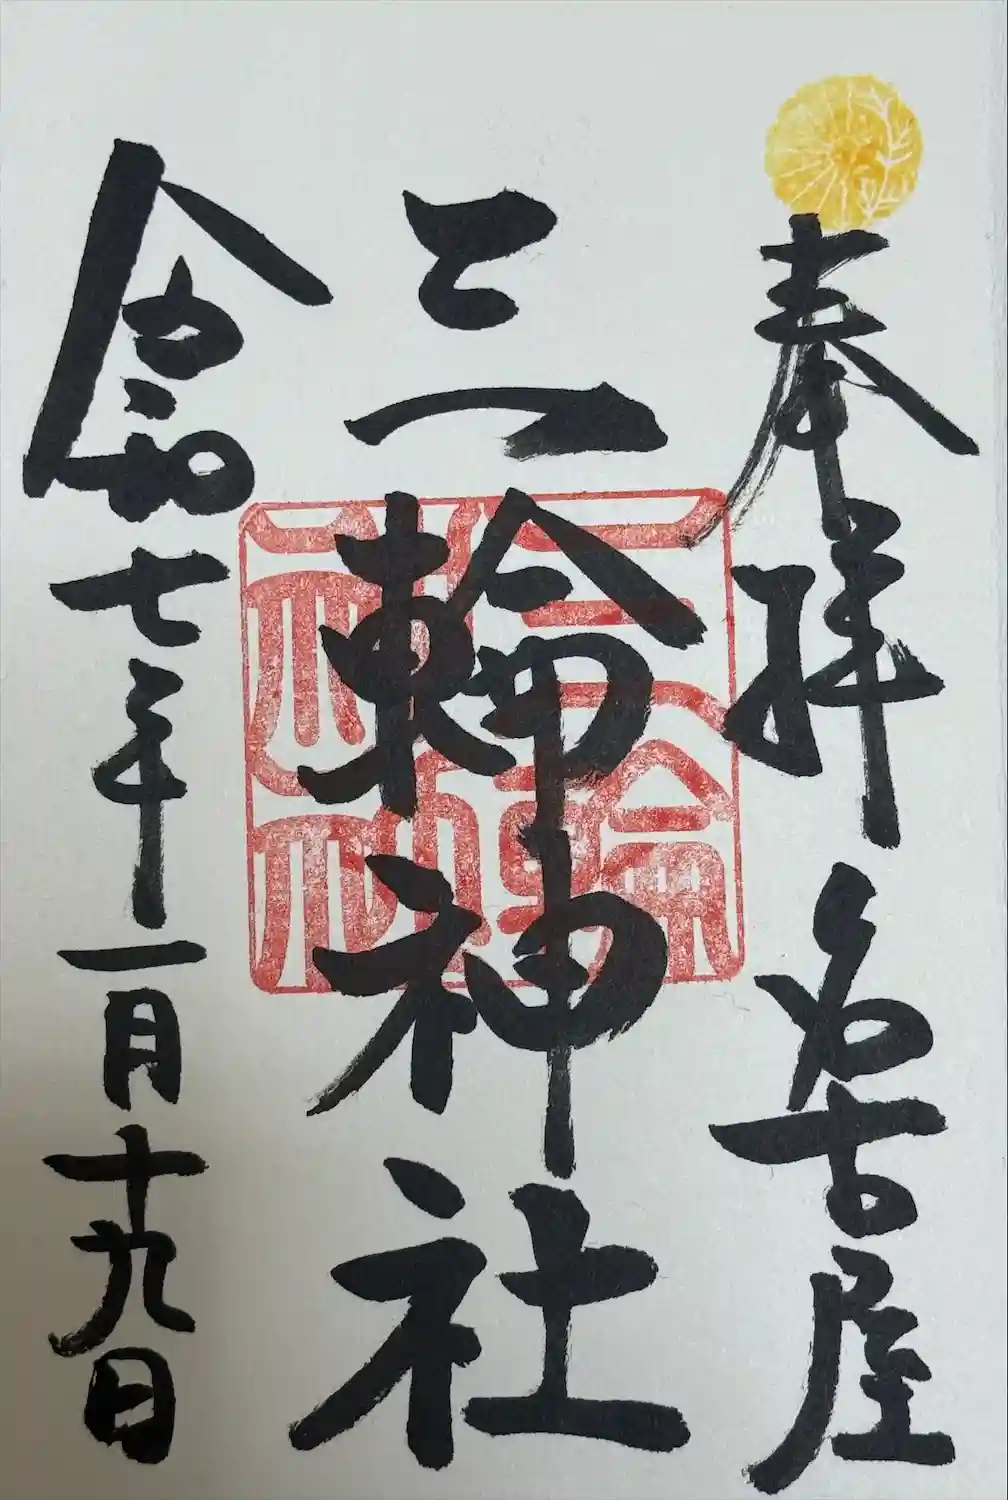 奉拝 名古屋
三輪神社
三輪神社
令和七年一月十九日